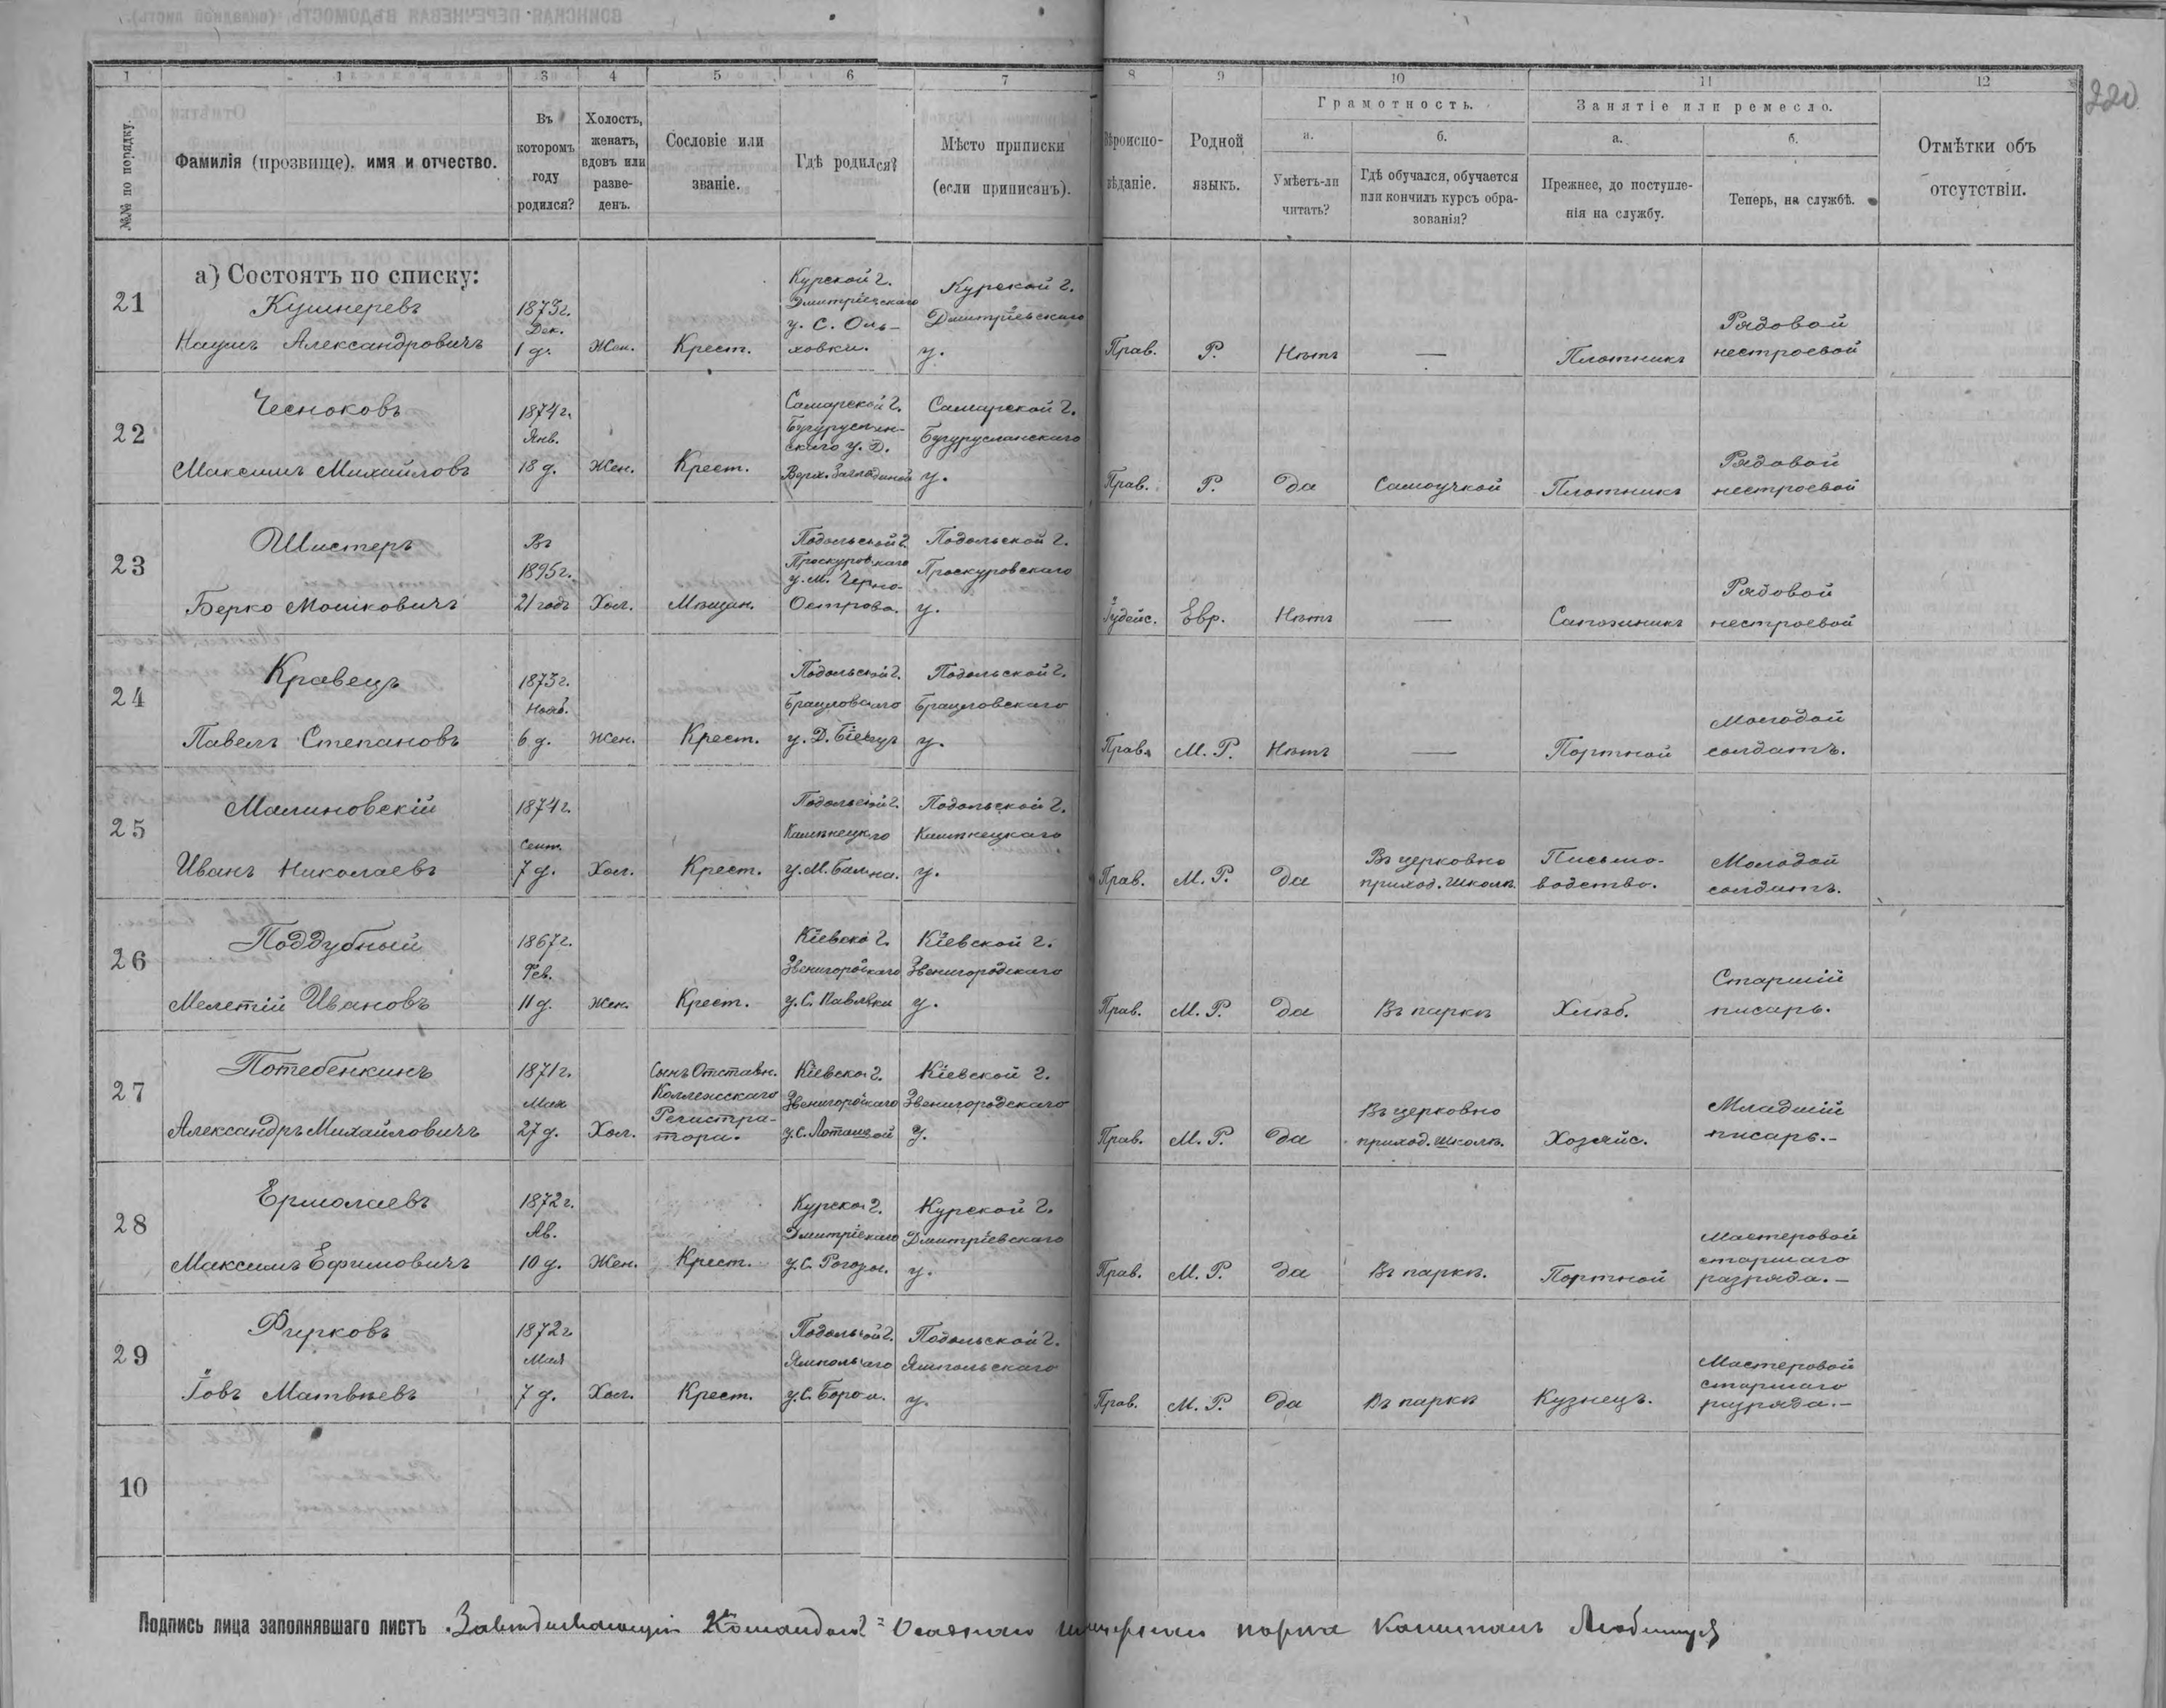 220
1 1 3 4 5 6 7 8 9 10 11 12
№№ по порядку.
Фамилія (прозвище), имя и отчество.
Въ
которомъ
году
родился?
Холостъ,
женатъ,
вдовъ или
разве-
денъ.
Сословіе или
званіе.
Гдѣ родился?
Мѣсто приписки
(если приписанъ).
Вѣроиспо-
вѣданіе.
Родной
языкъ.
Грамотность.
а.
Умѣетъ-ли
читать?
б.
Гдѣ обучался, обучается
или кончилъ курсъ обра-
зованія?
Занятіе или ремесло.
а.
Прежнее, до поступле-
нія на службу.
б.
Теперь, на службѣ.
Отмѣтки объ
отсутствіи.
а) Состоятъ по списку:
21
Кушнеревъ
Наумъ Александровичъ
1873г.
Дек.
1 д.
Жен.
Крест.
Курской г.
Дмитріевскаго
у. С. Оль-
ховки.
Курской г.
Дмитріевскаго
у.
Прав.
Р.
Нѣтъ
—
Плотникъ
Рядовой
нестроевой
22
Чесноковъ
Максимъ Михайловъ
1874г.
Янв.
18 д.
Жен.
Крест.
Самарской г.
Бугуруслан-
скаго у. Д.
Верх. Заглядиной
Самарской г.
Бугурусланскаго
у.
Прав.
Р.
Да
Самоучкой
Плотникъ
Рядовой
нестроевой
23
Шистеръ
Берко Мошковичъ
Въ
1895г.
21 годъ
Хол.
Мѣщан.
Подольской г.
Проскуровскаго
у. М. Черно-
Острова.
Подольской г.
Проскуровскаго
у.
Іудейс.
Евр.
Нѣтъ
—
Сапожникъ
Рядовой
нестроевой
24
Кравецъ
Павелъ Степановъ
1873г.
Нояб.
6 д.
Жен.
Крест.
Подольской г.
Брацловскаго
у. Д.
Подольской г.
Брацловскаго
у.
Прав.
М. Р.
Нѣтъ
—
Портной
Молодой
солдатъ.
25
Малиновскій
Иванъ Николаевъ
1874г.
Сент.
7 д.
Хол.
Крест.
Подольской г.
Каменецкаго
у. М. Балина.
Подольской г.
Каменецкаго
у.
Прав.
М. Р.
Да
Въ церковно
приход. школѣ.
Письмо-
водство.
Молодой
солдатъ.
26
Поддубный
Мелетій Ивановъ
1867г.
Фев.
11 д.
Жен.
Крест.
Кіевской г.
Звенигородскаго
у. С. Павловки
Кіевской г.
Звенигородскаго
у.
Прав.
М. Р.
Да
Въ паркѣ
Хлѣб.
Старшій
писарь.
27
Потебенкинъ
Александръ Михайловичъ
1871г.
Мая
27 д.
Хол.
Сынъ Отставн.
Коллежскаго
Регистра-
тора.
Кіевской г.
Звенигородскаго
у. С.
Кіевской г.
Звенигородскаго
у.
Прав.
М. Р.
Да
Въ церковно
приход. школѣ.
Хозяйс.
Младшій
писарь.–
28
Ермолаевъ
Максимъ Ефимовичъ
1872г.
Ав.
10 д.
Жен.
Крест.
Курской г.
Дмитріевскаго
у. С. Рогозы.
Курской г.
Дмитріевскаго
у.
Прав.
М. Р.
Да
Въ паркѣ.
Портной
Мастеровой
старшаго
разряда.–
29
Фирковъ
Іовъ Матвѣевъ
1872г.
Мая
7 д.
Хол.
Крест.
Подольской г.
Ямпольскаго
у. С.
Подольской г.
Ямпольскаго
у.
Прав.
М. Р.
Да
Въ паркѣ
Кузнецъ.
Мастеровой
старшаго
разряда.–
10
Подпись лица заполнявшаго листъ Завѣдывающій Командой 2го Осаднаго инженернаго парка Капитанъ